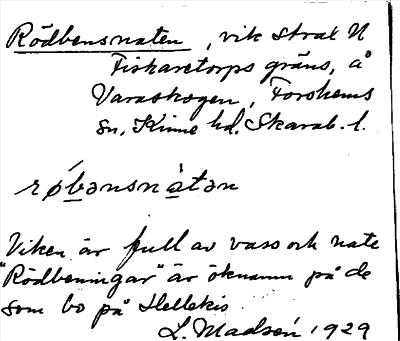 Rödbensnaten, vik strax N
Fiskaretorps gräns, å
Varaskogen, Forshems
sn, Kinne hd, Skarab. l.
røbənsnatən
Viken är full av vass och nate
"Rödbeningar" är öknamn på de
som bo på Hellekis
L. Madsén 1929